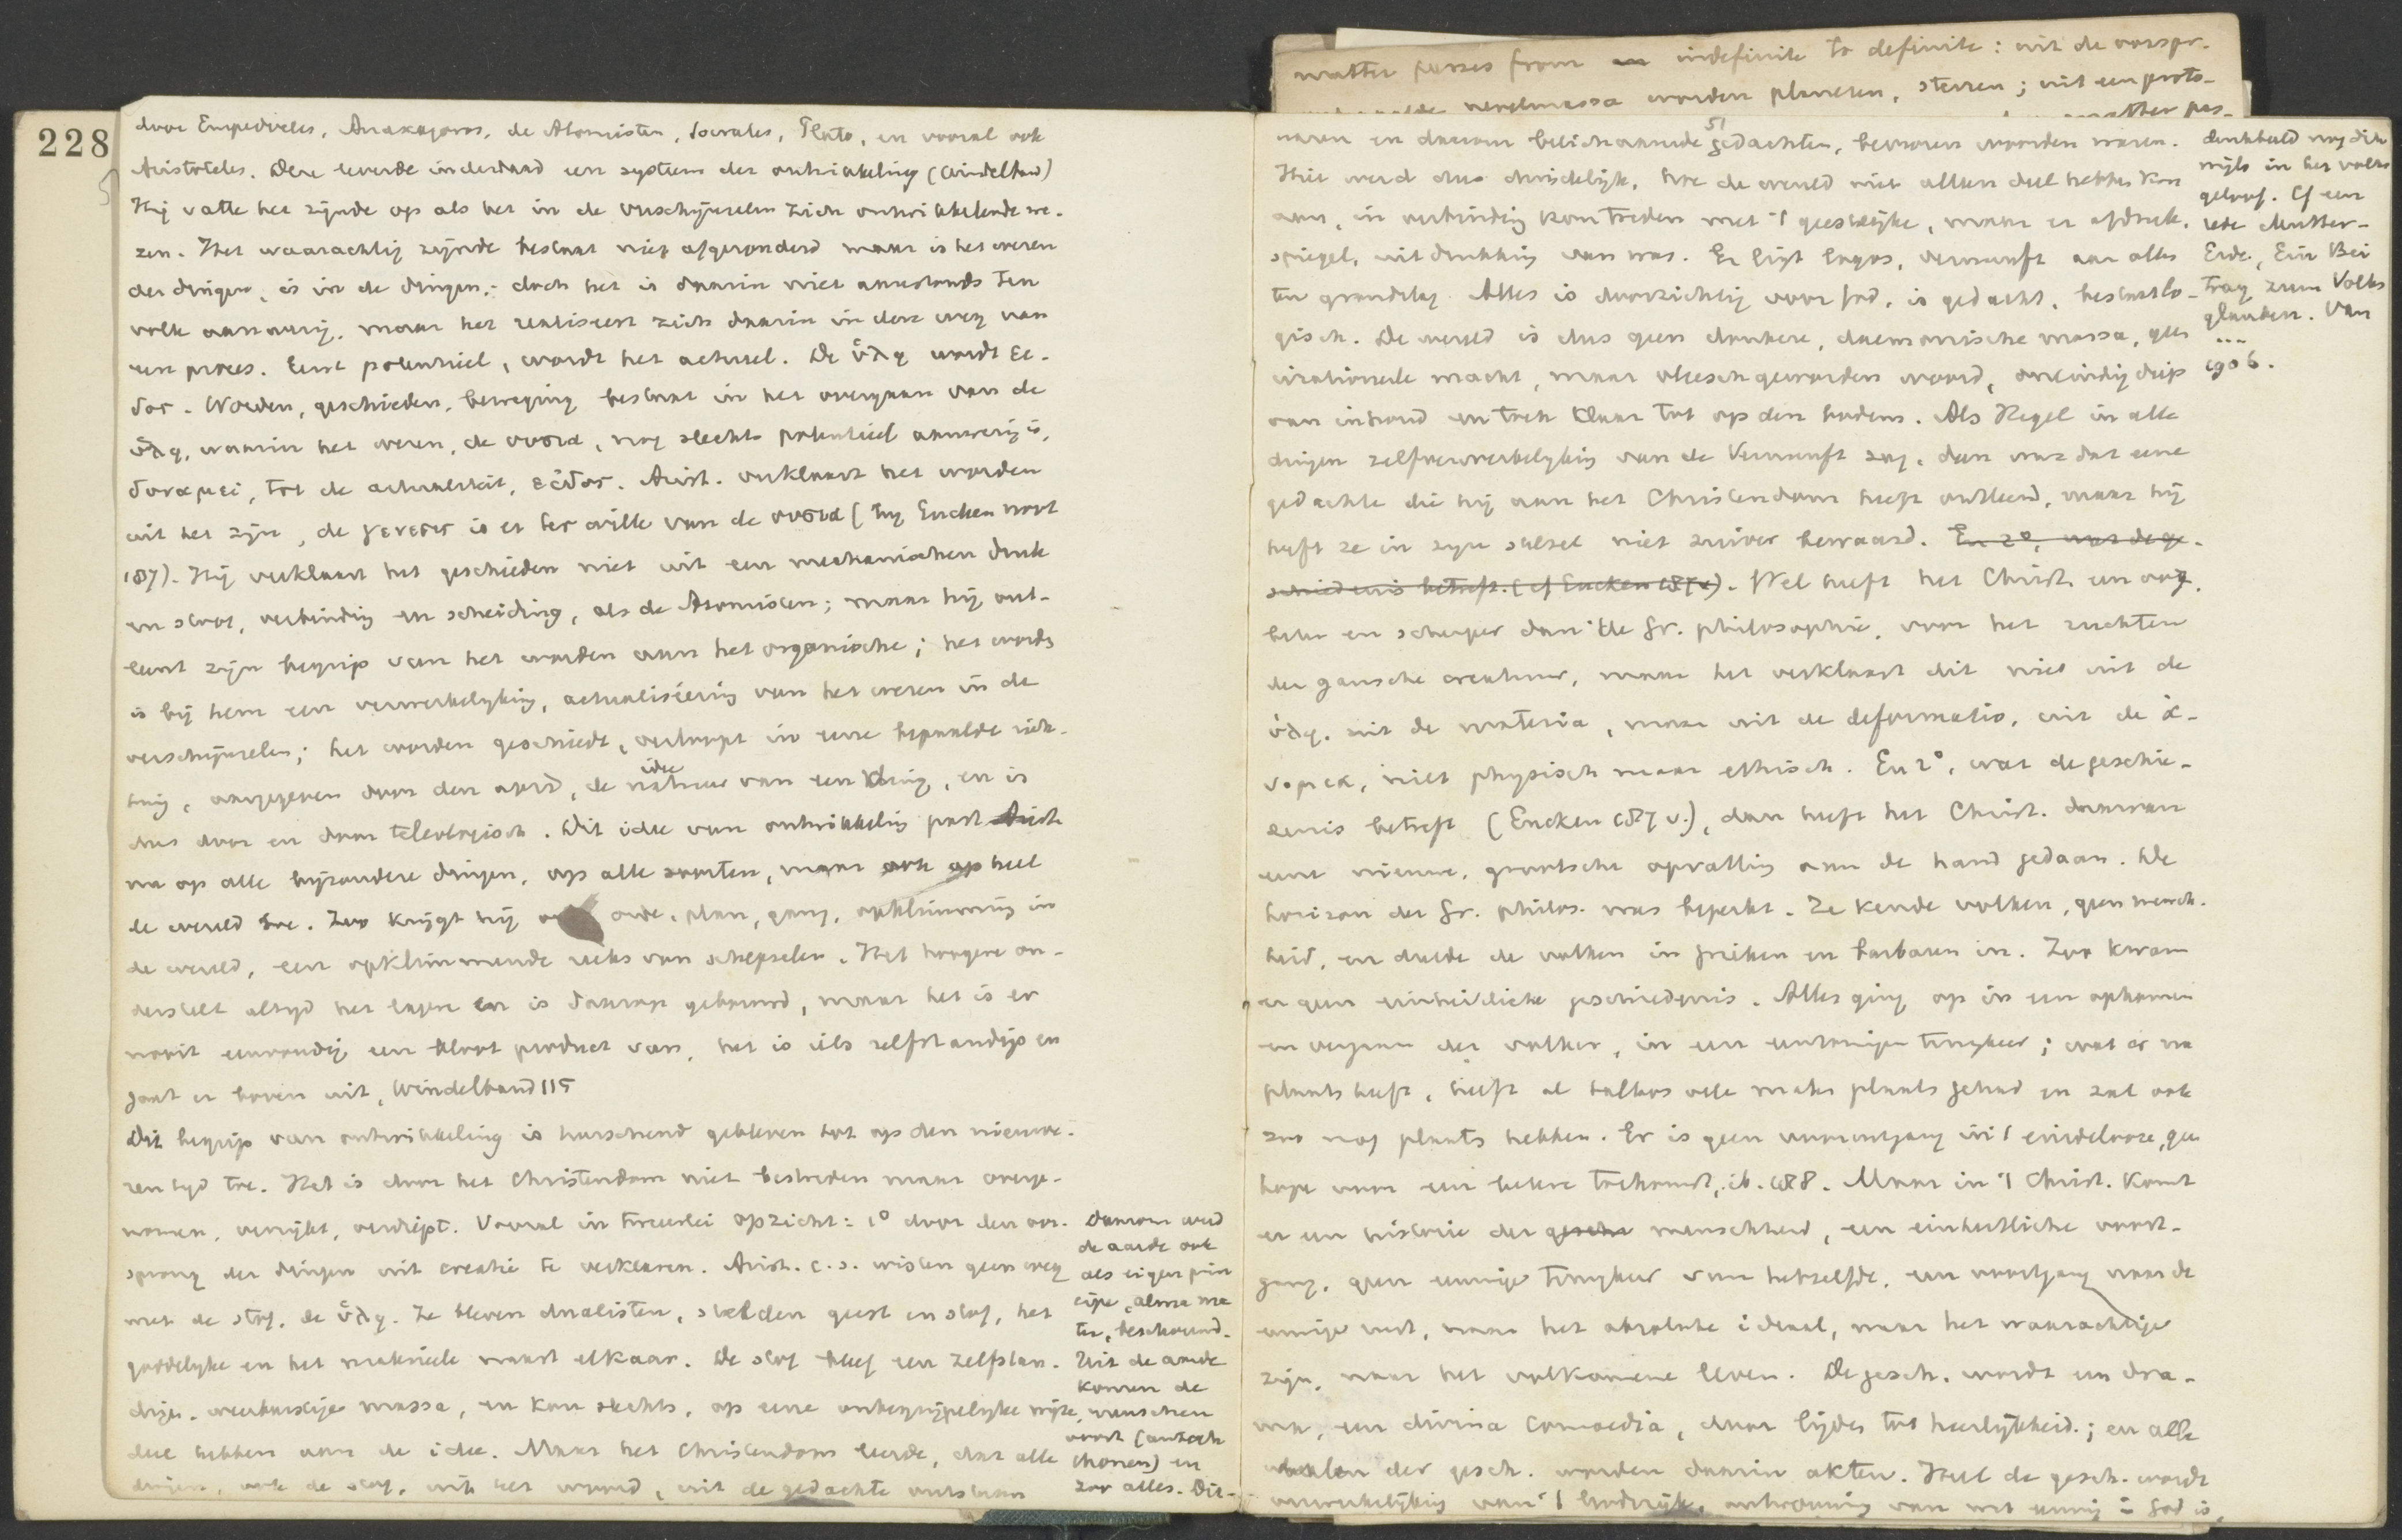 228
door Empedocles, Anaxagoras, de Atomisten, Socrates, Plato, en vooral ook
Aristoteles. Deze leverde inderdaad een system der ontwikkeling (Windelband)
Hij vatte het zijnde op als het in de verschijnselen zich ontwikkelende we-
zen. Het waarachtig zijnde bestaat niet afgezonderd maar is het wezen
der dingen, is in de dingen; doch het is daarin niet aanstonds ten
volle aanwezig, maar het realiseert zich daarin in den weg van
een proces. Eerst potentieel, wordt het actueel. De ὕλη wordt εἶ-
δος. Worden, geschieden, beweging bestaat in het overgaan van de
ὕλη, waarin het wezen, de οὐσία, nog slechts potentieel aanwezig is,
δυναμει, tot de actualiteit, εἶδος. Arist. verklaart het worden
uit het zijn, de γενεσις is er ter wille van de οὐσια (bij Eucken noot
187). Hij verklaart het geschieden niet uit een mechanischen druk
en stoot, verbinding en scheiding, als de Atomisten; maar hij ont-
leent zijn begrip van het worden aan het organische; het worden
is bij hem een verwerkelijking, actualisiering van het wezen in de
verschijnselen; het worden geschiedt, verloopt in eene bepaalde rich-
ting, aangegeven door den aard, de natuur van een ding, en is
idee
dus door en door teleologisch. Dit idee van ontwikkeling past Arist.
nu op alle bijzondere dingen, op alle soorten, maar ook op heel
de wereld toe. Zoo krijgt hij orde, plan, gang, opklimming in
de wereld, een opklimmende reeks van schepselen. Het hoogere on-
derstelt altijd het lagere en is daarop gebouwd, maar het is er
nooit eenvoudig een bloot product van, het is iets zelfstandigs en
gaat er boven uit, Windelband 115
Dit begrip van ontwikkeling is heerschend gebleven tot op den nieuwe-
ren tijd toe. Het is door het Christendom niet bestreden maar overge-
nomen, verrijkt, verdiept. Vooral in tweeerlei opzicht: 1° door den oor-
sprong der dingen uit creatie te verklaren. Arist. c.s. wisten geen weg
met de stof, de ὕλη. Ze bleven dualisten, stelden geest en stof, het
goddelijke en het materieele naast elkaar. De stof bleef een zelfstan-
dige, weerbarstige massa, en kon slechts, op eene onbegrijpelijke wijze,
deel hebben aan de idee. Maar het Christendom leerde, dat alle
dingen, ook de stof, uit het woord, uit de gedachte ontstaan
Daarom werd
de aarde ook
als eigen prin
cipe, alma ma
ter, beschouwd.
Uit de aarde
komen de
menschen
voort (autoch
thonen) en
zoo alles. Dit
matter passes from indefinite to definite: uit de oorspr.
nevelmassa worden planeten, sterren; uit een proto-
matter pas-
51
waren en daarom belichaamde gedachten, bewoorde woorden waren.
Hier werd dus duidelijk, hoe de wereld niet alleen deel hebben kon
aan, in verbinding kon treden met 't geestelijke, maar er afdruk,
spiegel, uitdrukking van was. Er ligt logos, vernunft aan alles
ten grondslag. Alles is doorzichtig voor God, is gedacht, bestaat lo-
gisch. De wereld is dus geen donkere, daemonische massa, geen
irationeele macht, maar vleeschgeworden woord, oneindig diep
van inhoud en toch klaar tot op den bodem. Als Hegel in alle
dingen zelfverwerkelijking van de Vernunft zag, dan was dat eene
gedachte die hij aan het Christendom heeft ontleend, maar hij
heeft ze in zijn stelsel niet zuiver bewaard. En 2°, wat de ge-
schiedenis betreft (cf Eucken 187v). Wel heeft het Christ. een oog,
beter en scherper dan de Gr. philosophie, voor het zuchten
der gansche creatuur, maar het verklaart dit niet uit de
ὕλη, uit de materia, maar uit de deformatio, uit de ἀ-
νομια, niet physisch maar ethisch. En 2°, wat de geschie-
denis betreft (Eucken 187 v.), dan heeft het Christ. daarvan
eene nieuwe, grootsche opvatting aan de hand gedaan. De
horizon der Gr. philos. was beperkt. Ze kende volken, geen mensch-
heid, en deelde de volken in Grieken en barbaren in. Zoo kwam
er geen einheitliche geschiedenis. Alles ging op in een opkomen
en vergaan der volken, in een eentonigen kringloop; wat er nu
plaats heeft, heeft al talloos vele malen plaats gehad en zal ook
zoo nog plaats hebben. Er is geen vooruitgang in 't eindelooze, geen
hope voor een betere toekomst, ib. 188. Maar in 't Christ. komt
er een historie der menschheid, een einheitliche voort-
gang, geen eeuwige van hetzelfde, een voortgang naar de
eeuwige rust, naar het absolute ideaal, naar het waarachtige
zijn, naar het volkomene leven. De gesch. wordt een dra-
ma, een divina comoedia, door lijden tot heerlijkheid; en alle
der gesch. worden daarin akten. Heel de gesch. wordt
verwerkelijking van 't Godsrijk, ontvouwing van wat eeuwig in God is,
denkbeeld nog dik
wijls in het volks
geloof. Cf een
rede Mutter-
Erde, Ein Bei
trag zum Volks
glauben. Van
...
1906.